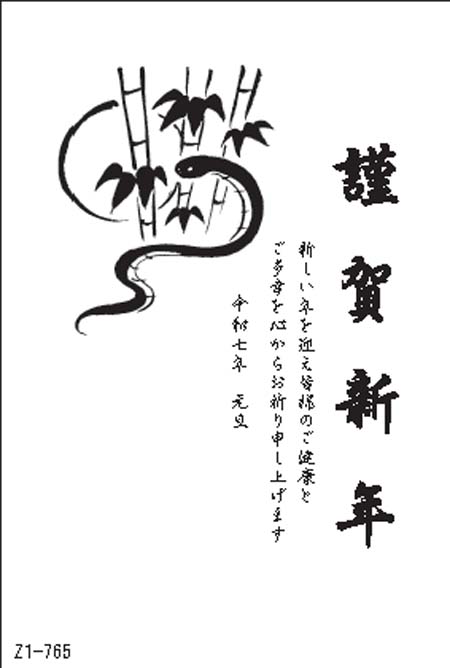 謹賀新年
新しい年を迎え皆様のご健康と
ご多幸を心からお祈り申し上げます
令和七年 元旦
Z1-765